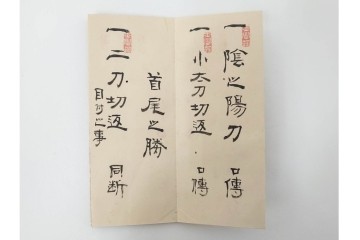 一陰之陽刀 口傳
一小太刀切返 口傳
首尾之勝
一二刀切返 同断